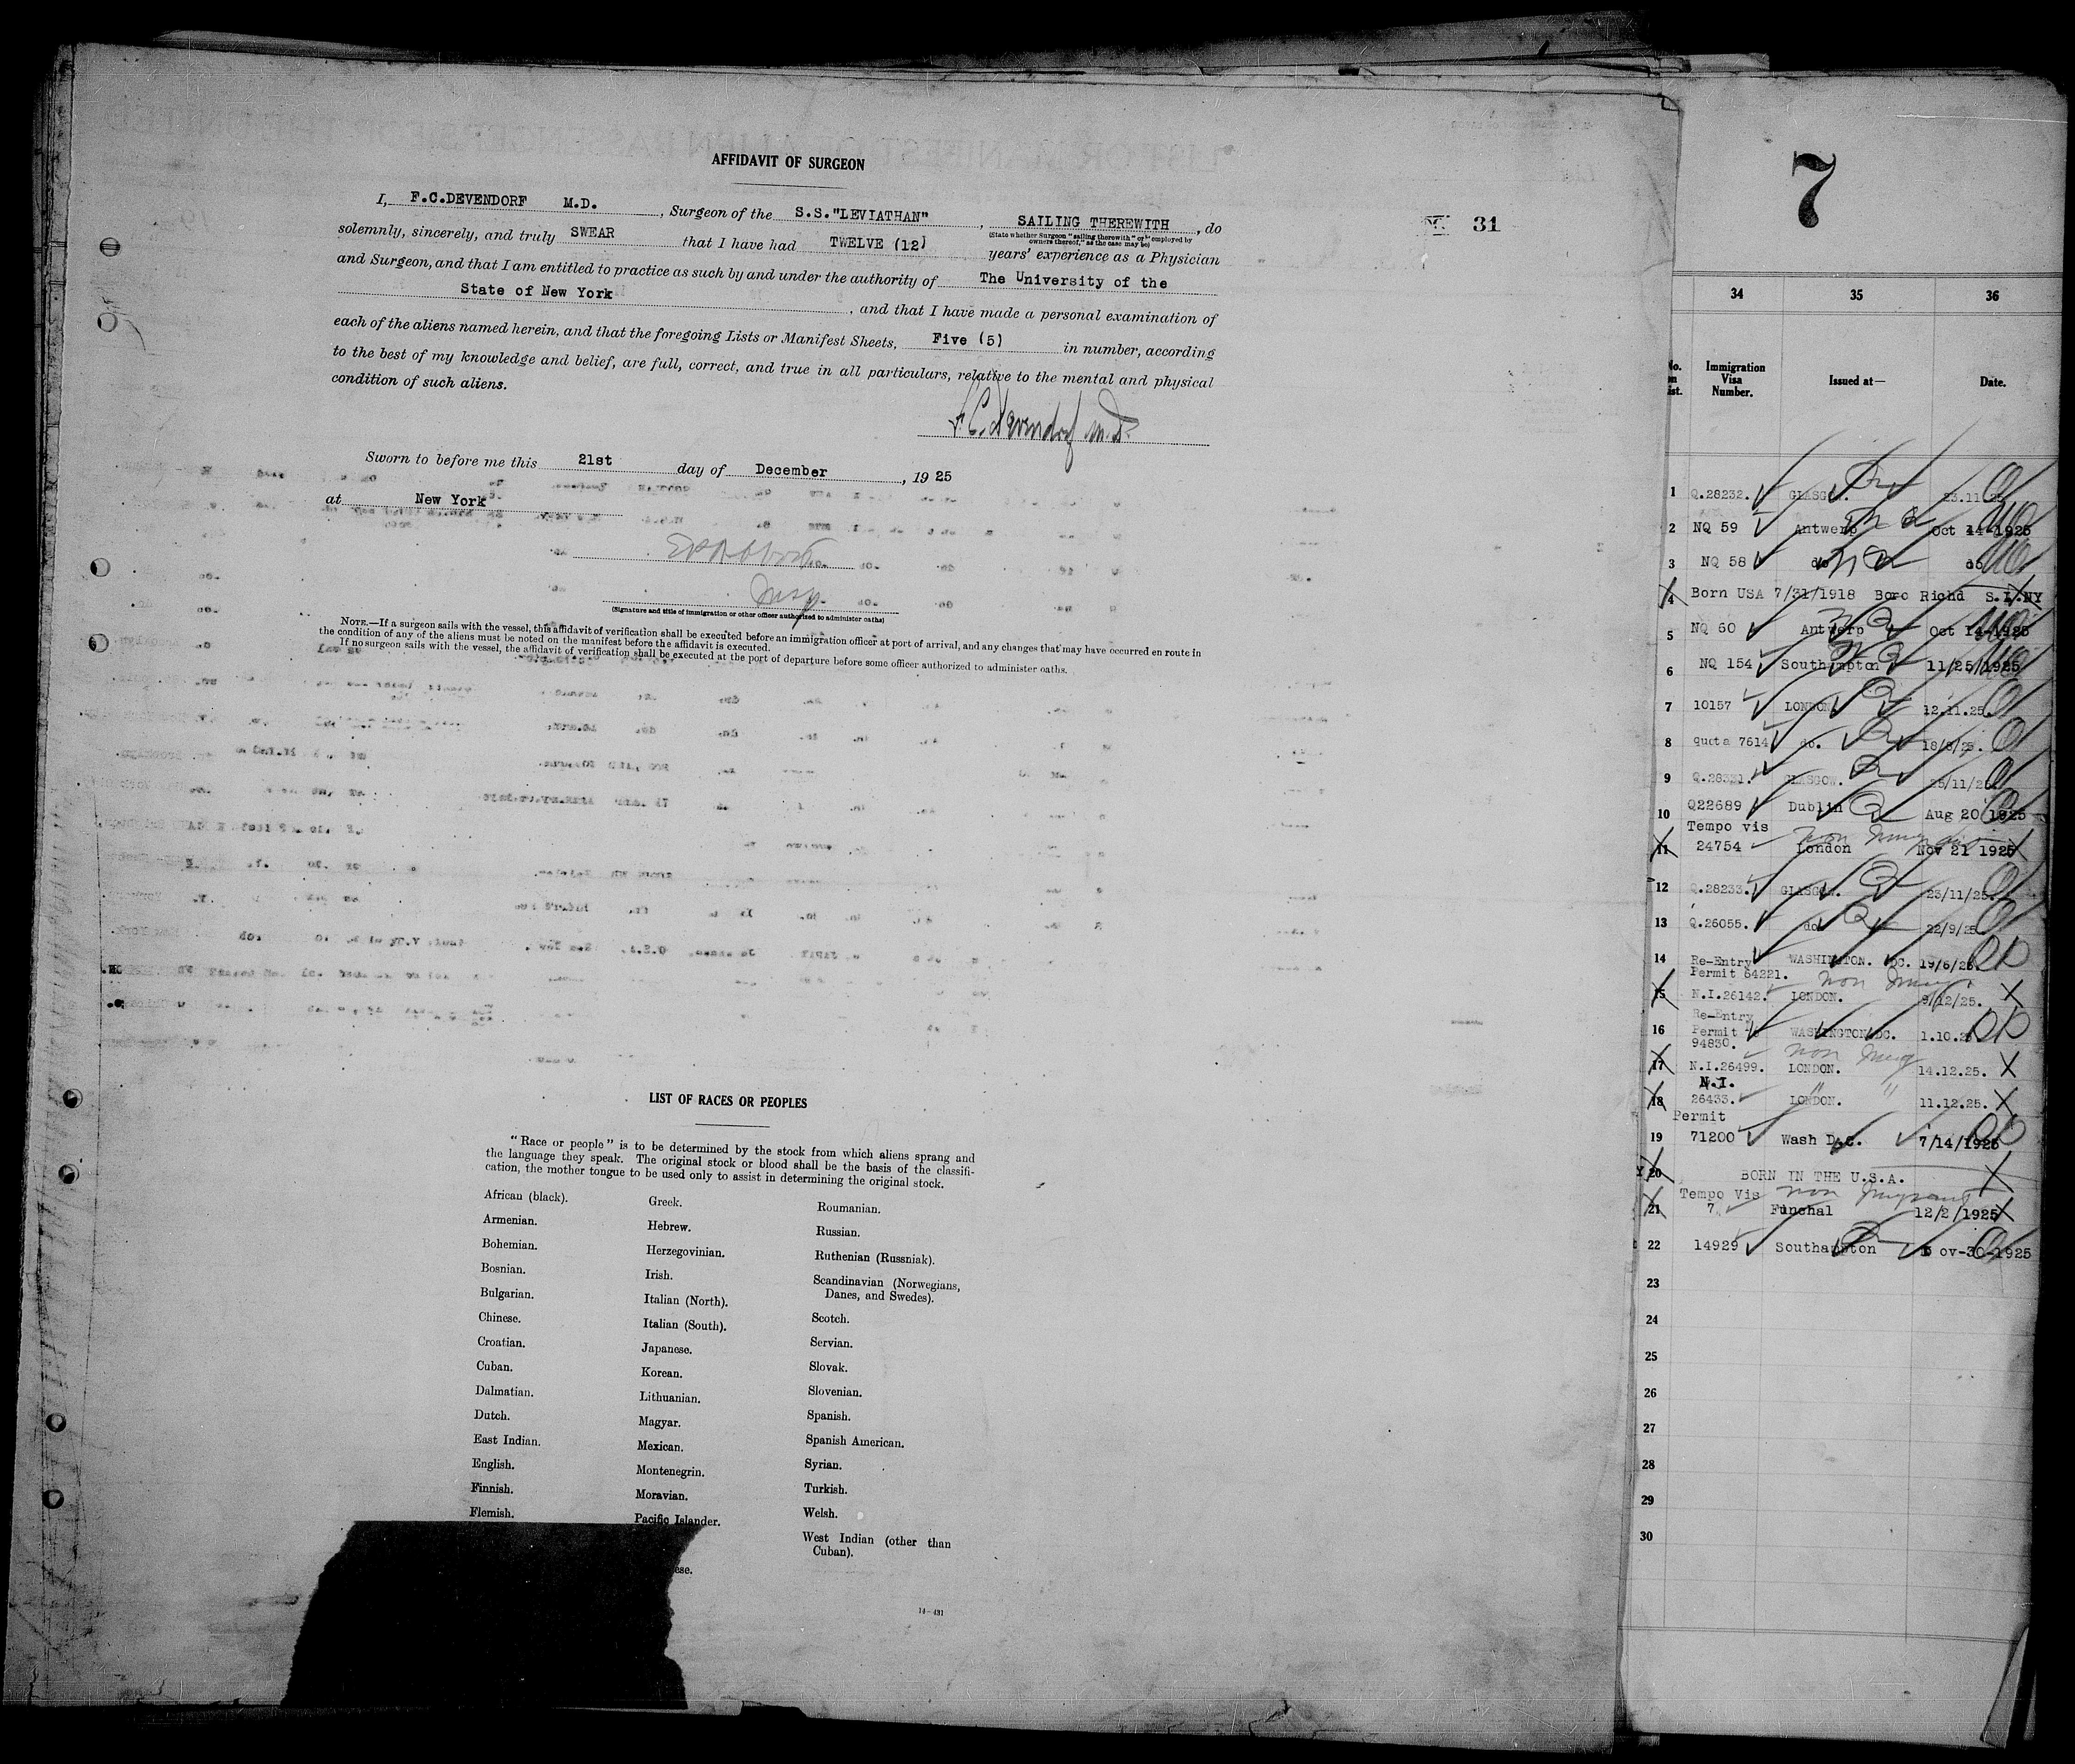 AFFIDAVIT OF SURGEON
I, F.C.DEVENDORF M.D. , Surgeon of the S.S."LEVIATHAN" , SAILING THEREWITH , do
(State whether Surgeon "sailing therewith" or "employed by owners thereof," as the case may be)
solemnly, sincerely, and truly SWEAR that I have had TWELVE (12) years' experience as a Physician
and Surgeon, and that I am entitled to practice as such by and under the authority of The University of the
State of New York , and that I have made a personal examination of
each of the aliens named herein, and that the foregoing Lists or Manifest Sheets, Five (5) in number, according
to the best of my knowledge and belief, are full, correct, and true in all particulars, relative to the mental and physical
condition of such aliens.
F.C. Devendorf M.D.
Sworn to before me this 21st day of December , 1925
at New York
Insp
(Signature and title of immigration or other officer authorized to administer oaths)
NOTE.—If a surgeon sails with the vessel, this affidavit of verification shall be executed before an immigration officer at port of arrival, and any changes that may have occurred en route in
the condition of any of the aliens must be noted on the manifest before the affidavit is executed.
If no surgeon sails with the vessel, the affidavit of verification shall be executed at the port of departure before some officer authorized to administer oaths.
31
LIST OF RACES OR PEOPLES
"Race or people" is to be determined by the stock from which aliens sprang and
the language they speak. The original stock or blood shall be the basis of the classifi-
cation, the mother tongue to be used only to assist in determining the original stock.
African (black).
Armenian.
Bohemian.
Bosnian.
Bulgarian.
Chinese.
Croatian.
Cuban.
Dalmatian.
Dutch.
East Indian.
English.
Finnish.
Flemish.
Greek.
Hebrew.
Herzegovinian.
Irish.
Italian (North).
Italian (South).
Japanese.
Korean.
Lithuanian.
Magyar.
Mexican.
Montenegrin.
Moravian.
Pacific Islander.
ese.
Roumanian.
Russian.
Ruthenian (Russniak).
Scandinavian (Norwegians,
Danes, and Swedes).
Scotch.
Servian.
Slovak.
Slovenian.
Spanish.
Spanish American.
Syrian.
Turkish.
Welsh.
West Indian (other than
Cuban).
14-431
7
34 35 36
No. on List. Immigration Visa Number. Issued at— Date.
1 Q.28232. GLASGOW. 23.11.25
2 NQ 59 Antwerp Oct 14-1925
3 NQ 58 do do
4 Born USA 7/31/1918 Boro Richd S.I.NY
5 NQ 60 Antwerp Oct 14-1925
6 NQ 154 Southampton 11/25/1925
7 10157 LONDON. 12.11.25.
8 quota 7614 do. 18/8/25.
9 Q.28331. GLASGOW. 25/11/25.
10 Q22689 Dublin Aug 20 1925
Tempo vis non Immigrant
11 24754 London Nov 21 1925
12 Q.28233. GLASGOW. 23/11/25.
13 Q.26055. do 22/9/25
14 Re-Entry Permit 64221. WASHINGTON. DC. 19/6/25.
non Immig
15 N.I.26142. LONDON. 9/12/25.
16 Re-Entry Permit 94830. WASHINGTON DC. 1.10.25
non Immig
17 N.I.26499. LONDON. 14.12.25.
18 N.I. 26433. LONDON. " 11.12.25.
Permit
19 71200 Wash D.C. 7/14/1925
20 BORN IN THE U.S.A.
Tempo Vis non Immigrant
21 7 Funchal 12/2/1925
22 14929 Southampton ov-30-1925
23
24
25
26
27
28
29
30